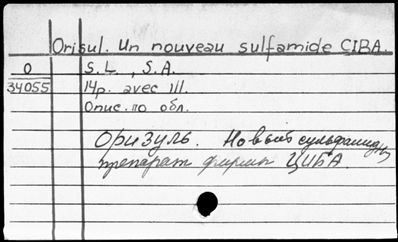 Orisul. Un nouveau sulfamide CIBA.
O S.L., S.A.
34055 14p. avec ill.
Опис. по обл.
Оризуль. Новый сульфамидн.
препарат фирмы ЦИБА.